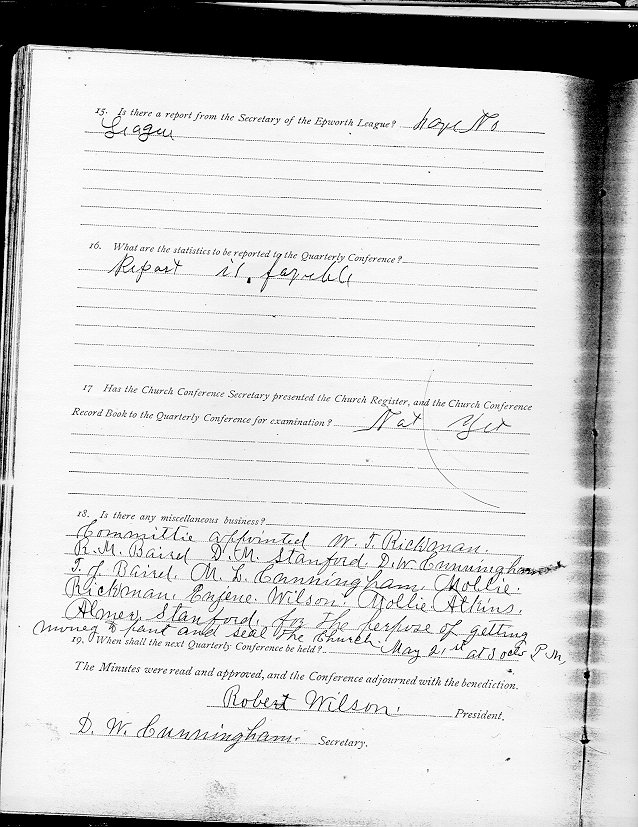 15. Is there a report from the Secretary of the Epworth League? have No
League
16. What are the statistics to be reported to the Quarterly Conference?
Report is favorble
17 Has the Church Conference Secretary presented the Church Register, and the Church Conference
Record Book to the Quarterly Conference for examination? Not Yet
18. Is there any miscellaneous business?
Committie appointed W. T. Rickman.
R. M. Baird D. M. Stanford. D. W. Cunningham
T. J. Baird. M. L. Cunningham. Mollie.
Rickman. Eugene. Wilson. Mollie Atkins.
Almer Stanford. for the perpose of getting
money to paint and seal the Church
19. When shall the next Quarterly Conference be held? May 21st at 3 P. M.
The Minutes were read and approved, and the Conference adjourned with the benediction.
Robert Wilson. President,
D. W. Cunningham. Secretary.